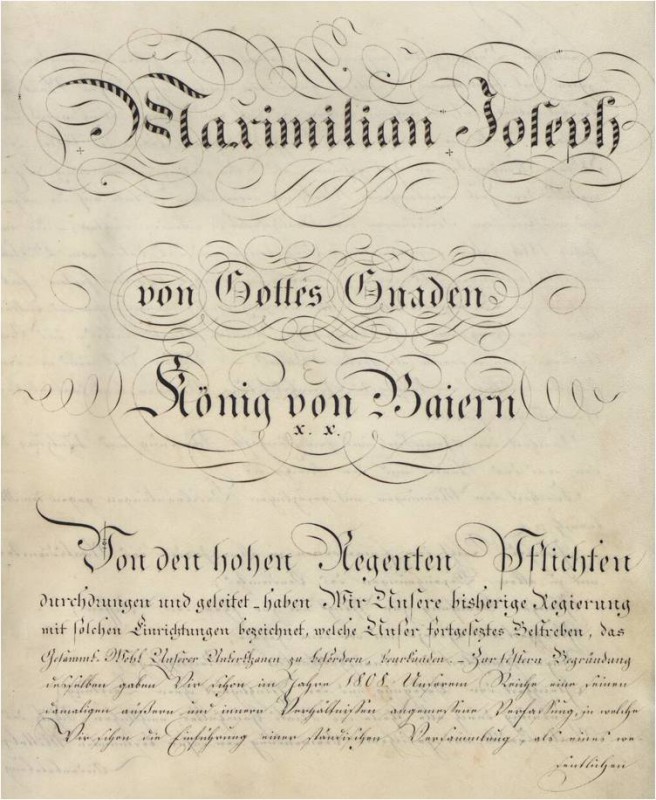 Maximilian Joseph
von Gottes Gnaden
König von Baiern
x. x.
Von den hohen Regenten Pflichten
durchdrungen und geleitet – haben Wir Unsere bisherige Regierung
mit solchen Einrichtungen bezeichnet, welche Unser fortgesetztes Bestreben, das
Gesammt-Wohl Unserer Unterthanen zu befördern, beurkunden. – Zur festern Begründung
desselben gaben Wir schon im Jahre 1808 Unserem Reiche eine seinen
damaligen äußern und innern Verhältnißen angemessene Verfassung, in welche
Wir schon die Einführung einer ständischen Versammlung, als eines we-
sentlichen